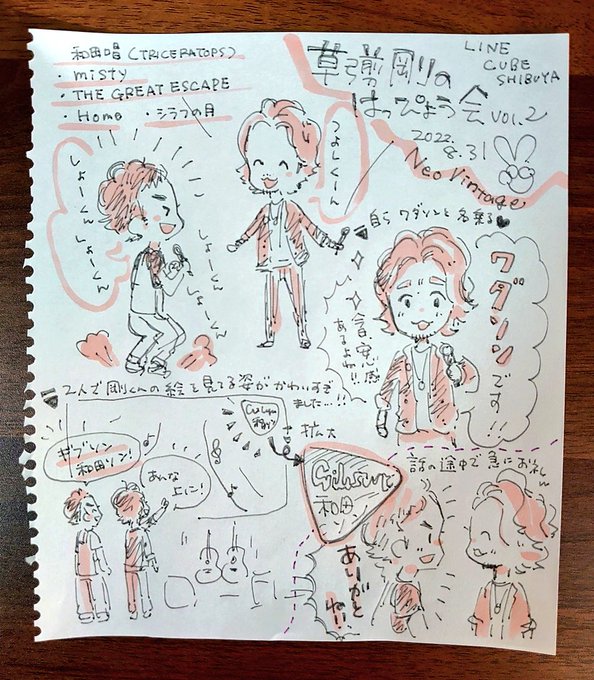 和田唱(TRICERATOPS)
・misty
・THE GREAT ESCAPE
・Home ・シラフの月
草彅剛の
はっぴょう会 VOL.2
LINE
CUBE
SHIBUYA
2022
8.31
Neo Vintage
しょーくーん
しょーくーん
しょーくん
しょーくん
つよしくーん
自らワダソンと名乗る♥
ワダソンです!!
あるよね!!
2人で剛くんの絵を見てる姿がかわいすぎ
ました…!!
ギブソン
和田ソン!
あんな
上に!
Gibson
和田
ソン
拡大
話の途中で急におれい
ありがと
ね!!